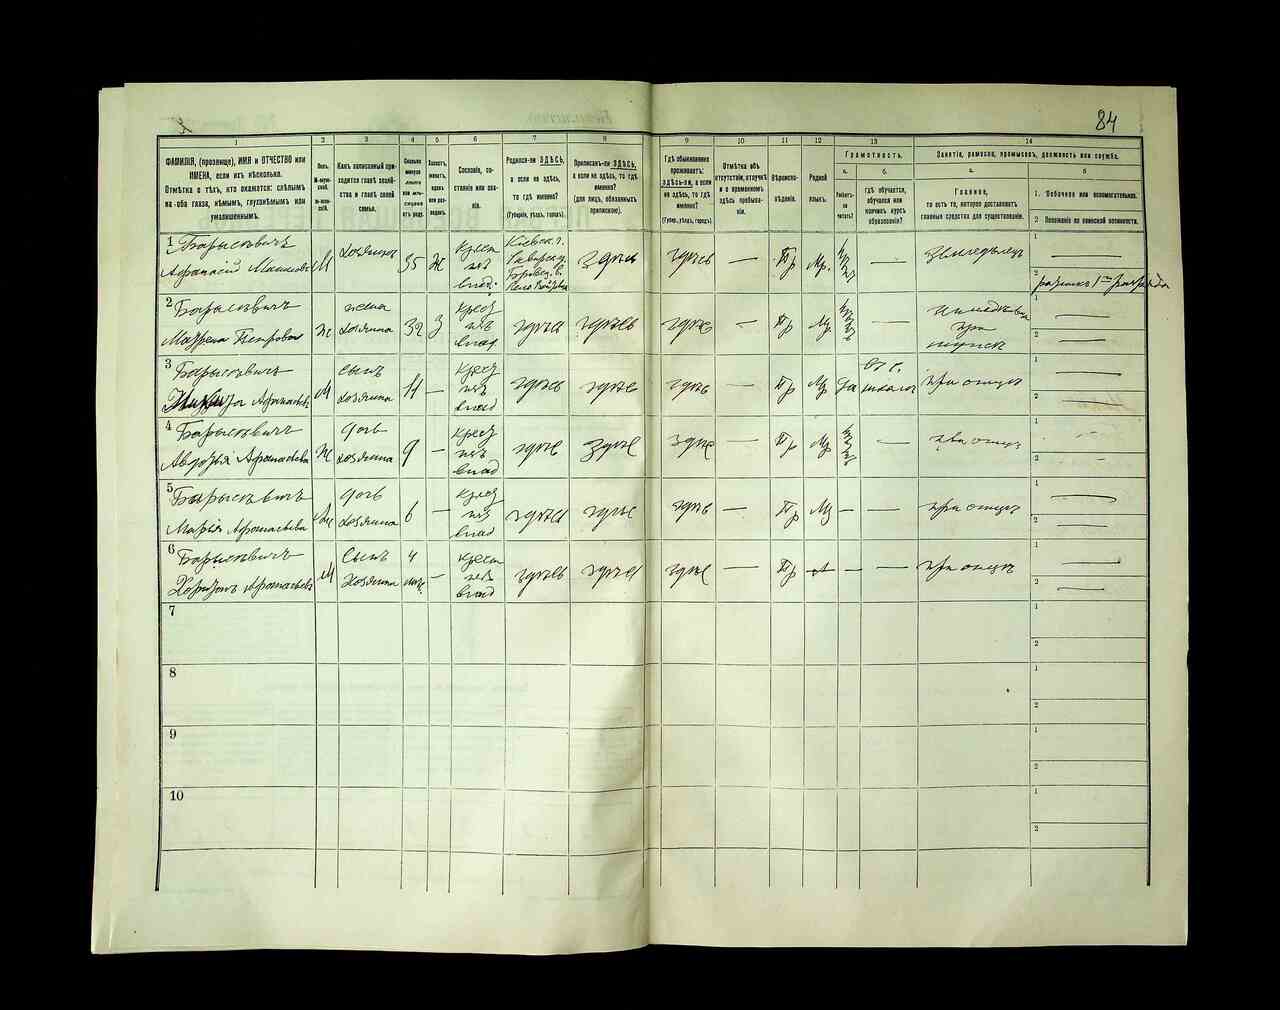 84
1
2
3
4
5
6
7
8
9
10
11
12
13
14
ФАМИЛІЯ, (прозвище), ИМЯ и ОТЧЕСТВО или
ИМЕНА, если ихъ нѣсколько.
Отмѣтка о тѣхъ, кто окажется: слѣпымъ
на оба глаза, нѣмымъ, глухонѣмымъ или
умалишеннымъ.
Полъ.
Какъ записанный при-
ходится главѣ хозяй-
ства и главѣ своей
семьи.
Сколько
минуло
лѣтъ
Холостъ,
женатъ,
вдовъ
или раз-
веденъ.
Сословіе, со-
стояніе или зва-
ніе.
Родился-ли ЗДѢСЬ,
а если не здѣсь,
то гдѣ именно?
(Губернія, уѣздъ, городъ).
Приписанъ-ли ЗДѢСЬ,
а если не здѣсь, то гдѣ
именно?
(для лицъ, обязанныхъ
припискою).
Гдѣ обыкновенно
проживаетъ:
ЗДѢСЬ-ли, а если
не здѣсь, то гдѣ
именно?
(Губер., уѣздъ, городъ)
Отмѣтка объ
отсутствіи, отлучкѣ
и о временномъ
здѣсь пребыва-
ніи.
Вѣроиспо-
вѣданіе.
Родной
языкъ.
Грамотность.
а.
б.
Умѣетъ-
ли
читать?
гдѣ обучается,
обучался или
кончилъ курсъ
образованія?
Занятіе, ремесло, промыселъ, должность или служба.
а.
б
Главное,
то есть то, которое доставляетъ
главныя средства для существованія.
1. Побочное или вспомогательное.
2 Положеніе по воинской повинности.
1 Барысевичъ
Афанасій М
хозяинъ
35
Ж
Крест
изъ
влад.
Кіевск. г.
здѣсь
здѣсь
—
Пр
Мр.
—
Земледѣлецъ
1
2
ратникъ 1го разряда
2 Барысевичъ
Петрова
Ж
жена
хозяина
32
З
Крест
изъ
влад
здѣсь
здѣсь
здѣсь
—
Пр
Мр
—
при
мужѣ
1
2
3 Барысевичъ
Афанасьевъ
М
сынъ
хозяина
11
—
Крест
изъ
влад
здѣсь
здѣсь
здѣсь
—
Пр
Мр
Да
школѣ
при отцѣ
1
2
4 Барысевичъ
Афанасьева
Ж
дочь
хозяина
9
—
Крест
изъ
влад
здѣсь
здѣсь
здѣсь
—
Пр
Мр
—
при отцѣ
1
2
5 Барысевичъ
Марія Афанасьева
Ж
дочь
хозяина
6
—
Крест
изъ
влад
здѣсь
здѣсь
здѣсь
—
Пр
Мр
—
—
при отцѣ
1
2
6 Барысевичъ
Афанасьевъ
М
Сынъ
Хозяина
4
—
Крест
изъ
влад
здѣсь
здѣсь
здѣсь
—
Пр
—
—
при отцѣ
1
2
7
1
2
8
1
2
9
1
2
10
1
2